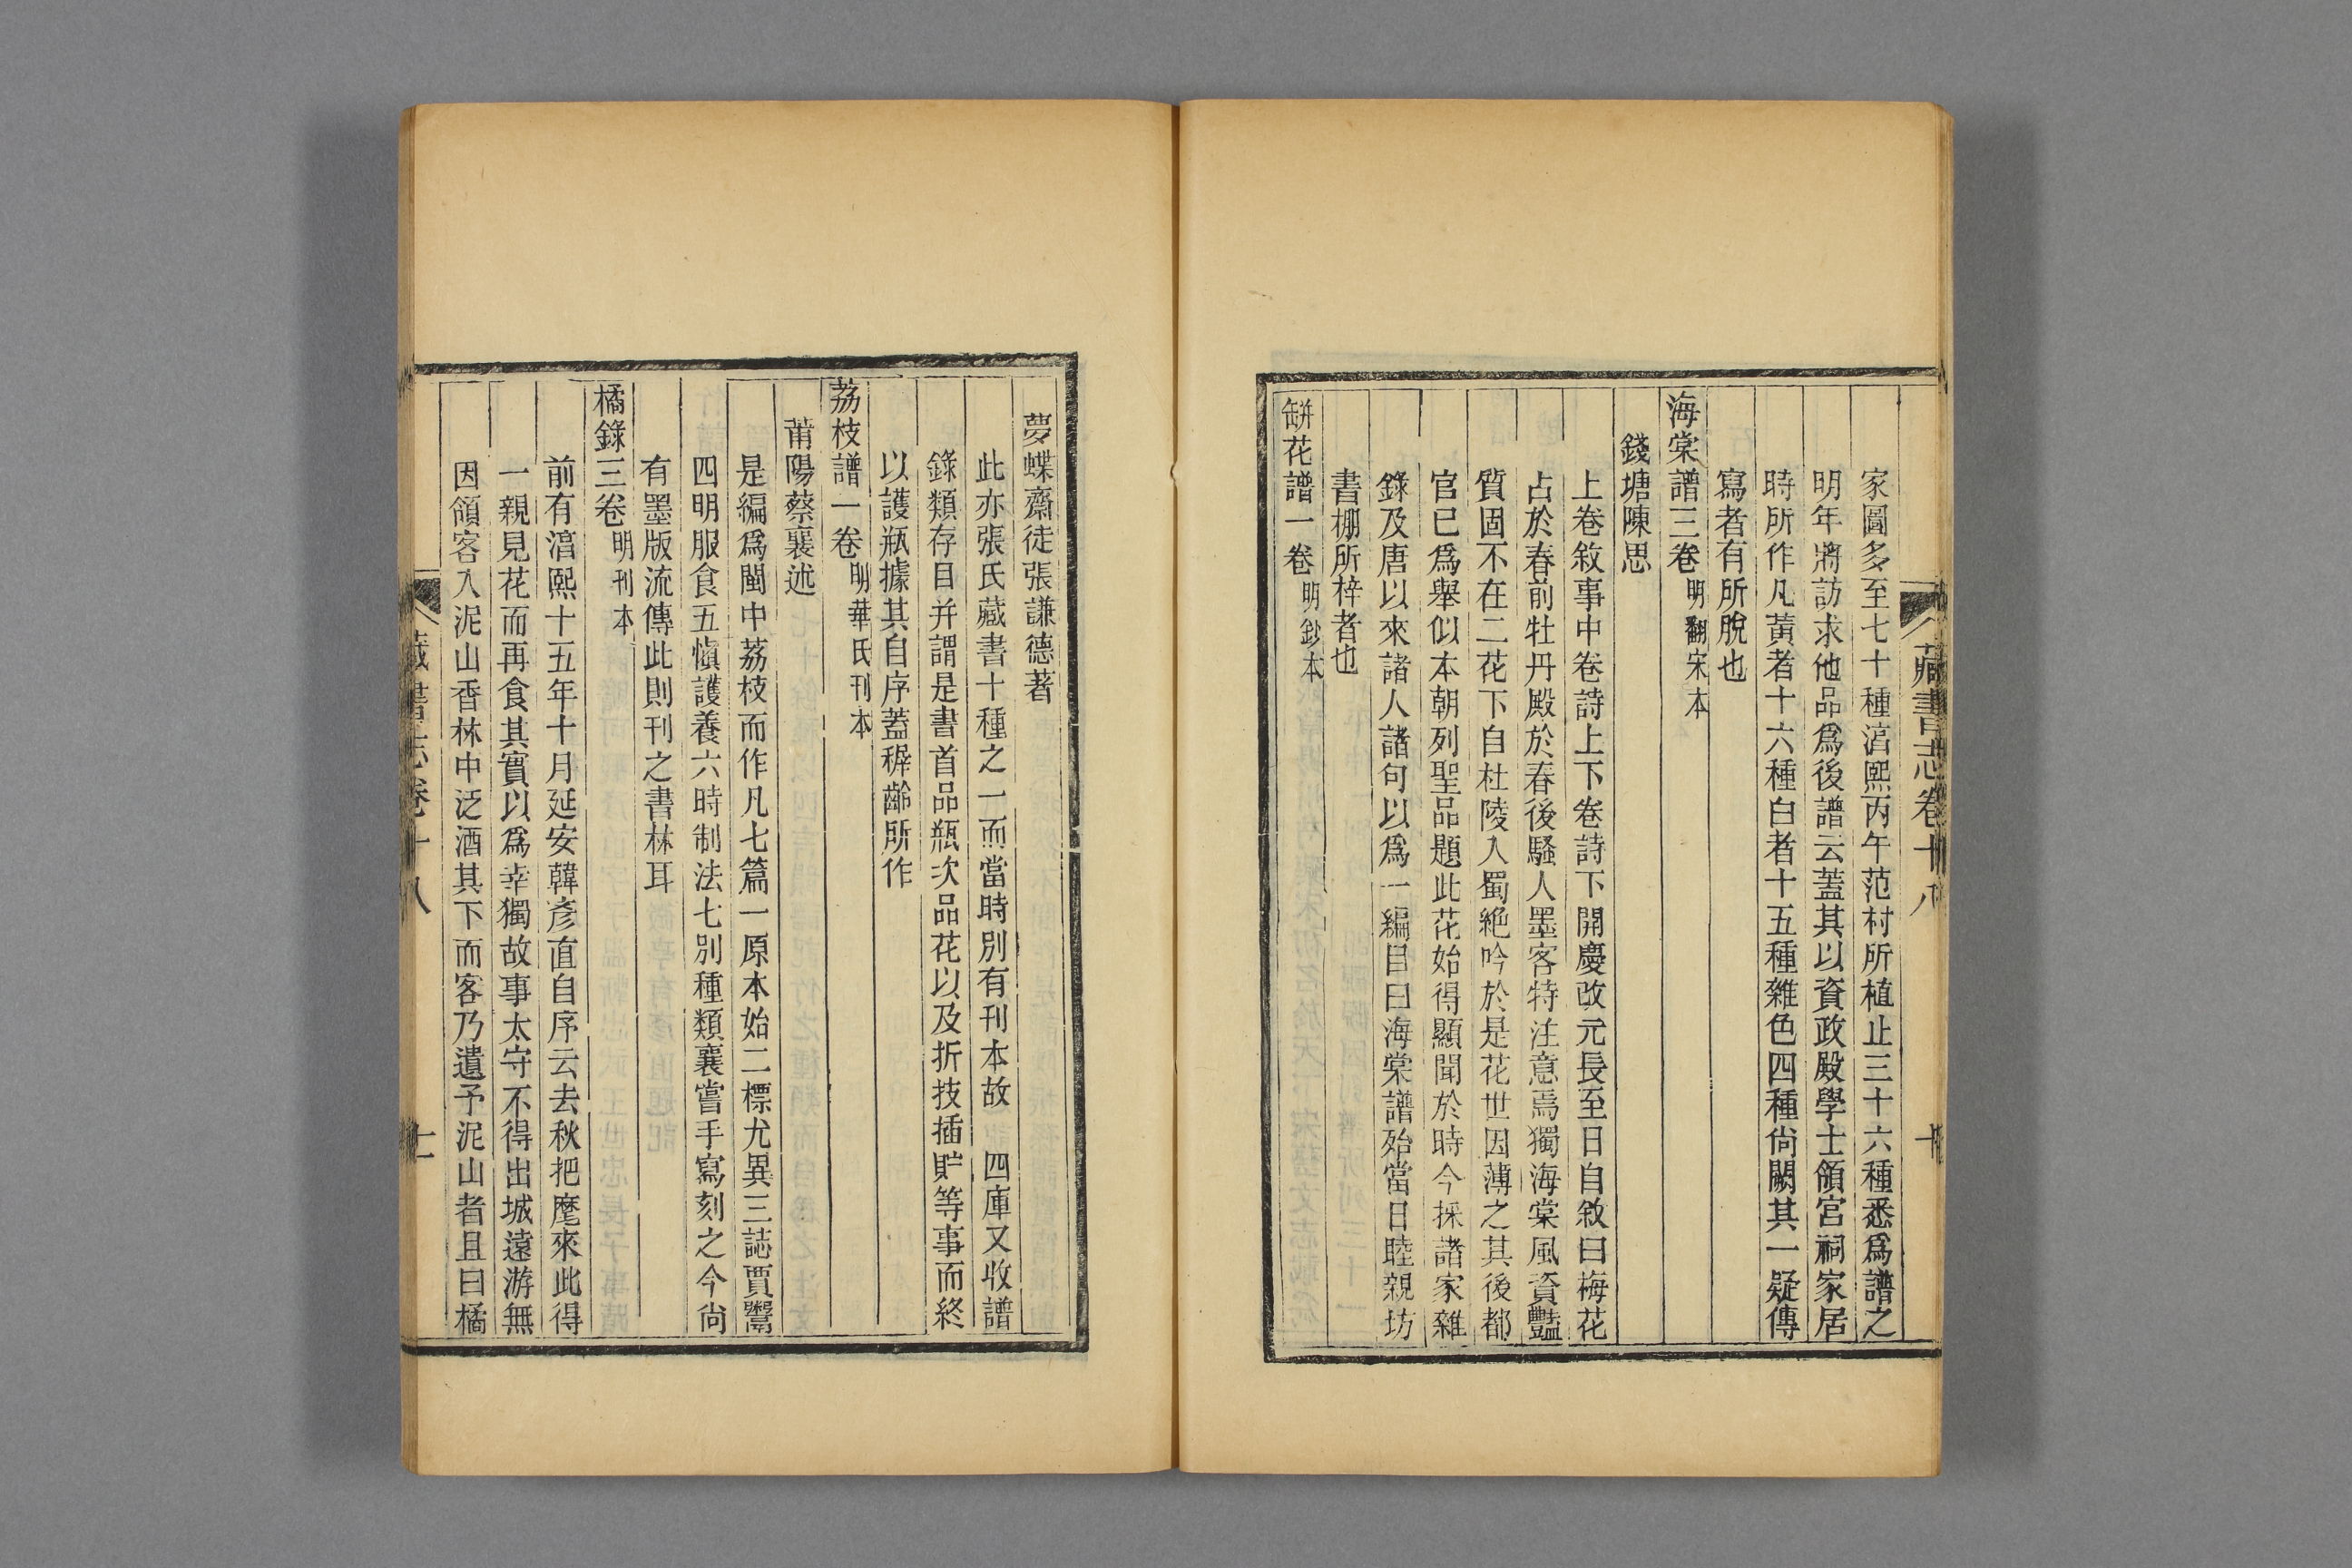 藏書志卷十八
十
家圖多至七十種湻熙丙午范村所植止三十六種悉爲譜之
明年將訪求他品爲後譜云蓋其以資政殿學士領宮祠家居
時所作凡黃者十六種白者十五種雜色四種尙闕其一疑傳
寫者有所脫也
海棠譜三卷明翻宋本
錢塘陳思
上卷敘事中卷詩上下卷詩下開慶改元長至日自敘曰梅花
占於春前牡丹殿於春後騷人墨客特注意焉獨海棠風資豔
質固不在二花下自杜陵入蜀絕吟於是花世因薄之其後都
官已爲舉似本朝列聖品題此花始得顯聞於時今採諸家雜
錄及唐以來諸人諸句以爲一編目曰海棠譜殆當日睦親坊
書棚所梓者也
缾花譜一卷明鈔本
夢蝶齋徒張謙德著
此亦張氏藏書十種之一而當時別有刊本故 四庫又收譜
錄類存目幷謂是書首品瓶次品花以及折技插貯等事而終
以護瓶據其自序蓋稺齡所作
荔枝譜一卷明華氏刊本
莆陽蔡襄述
是編爲閩中荔枝而作凡七篇一原本始二標尤異三誌賈鬻
四明服食五愼護養六時制法七別種類襄嘗手寫刻之今尙
有墨版流傳此則刊之書林耳
橘錄三卷明刊本
前有湻熙十五年十月延安韓彥直自序云去秋把麾來此得
一親見花而再食其實以爲幸獨故事太守不得出城遠游無
因領客入泥山香林中泛酒其下而客乃遺予泥山者且曰橘
藏書志卷十八
十一